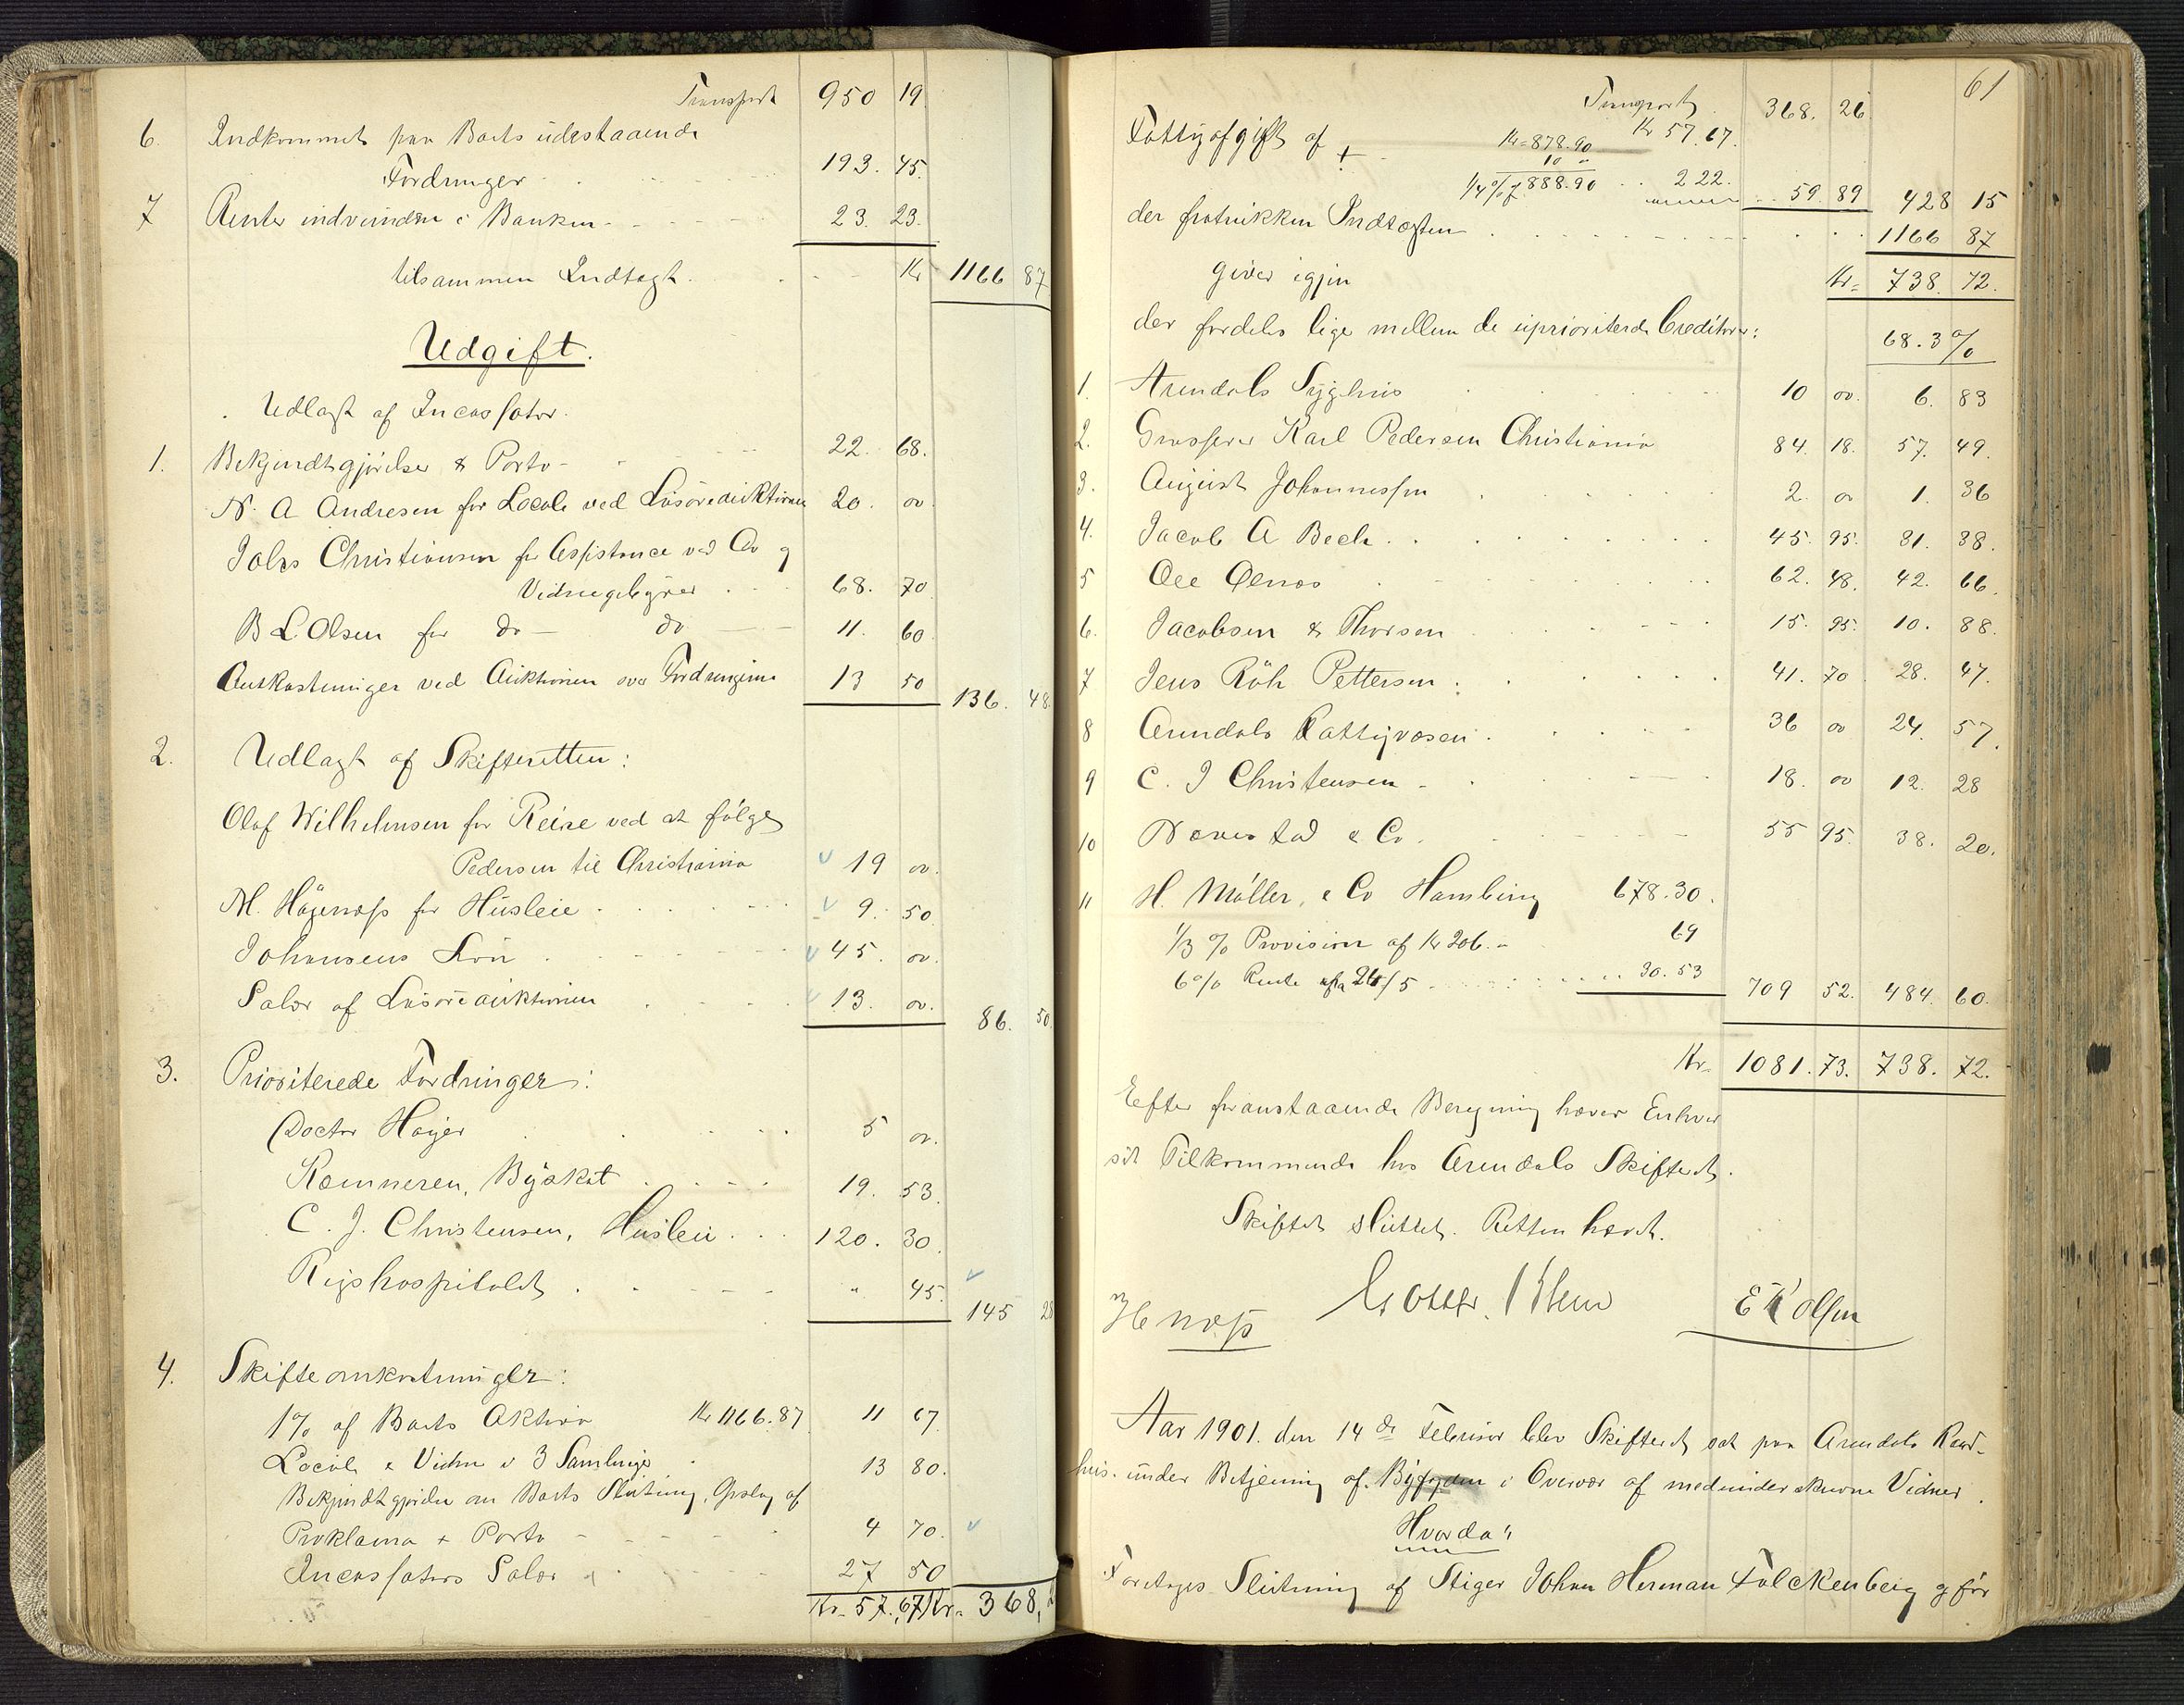 Transport 950 19
6. Indkommet paa Boets udestaaende
Fordringer 193. 45.
7 Renter indvundne i Banken 23. 23.
tilsammen Indtægt Kr 1166 87
Udgift.
Udlagt af Incassator.
1. Bekjendtgjørelser & Porto 22. 68.
N. A Andresen for Locale ved Løsøreauktionen 20. 00.
Jales Christiansen for Assistance ved Do og
Vidnegebyrer 68. 70.
B L Olsen for do do 11. 60
Omkostninger ved Auktionen over Fordringerne 13 50 136. 48.
2. Udlagt af Skifteretten:
Olaf Wilhelmsen for Reise ved at følge
Pedersen til Christiania 19 00.
M. Høgenæss for Husleie 9. 50.
Johansens Løn 45. 00.
Salær af Løsøreauktionen 13. 00. 86. 50.
3. Prioriterede Fordringer:
Doctor Høyer 5 00.
Kæmneren, Byskat 19. 53.
C. J. Christensen, Husleie 120. 30.
Rigshospitalet " 45. 145 28
4. Skifteomkostninger:
1% af Boets Aktiva Kr 1166.87 11 67.
Locale & Vidner v 3 Samlinger 13 80.
Bekjendtgjørelse om Boets Slutning, Opslag af
Proklama + Porto 4 70.
Incassators Salær 27 50
Kr. 57.67 Kr. 368,2
61
Transport 368. 26
Fattigafgift af + Kr. 878.90 Kr 57.67.
10 "
1/4 % af 888.90 2 22. 59. 89 428 15
der fratrukken Indtægten 1166 87
giver igjen Kr. 738. 72.
der fordeles lige mellem de uprioriterede Creditorer: 68.3 %
1. Arendals Sygehus 10 00. 6. 83
2. Grosserer Karl Pedersen Christiania 84. 18. 57. 49.
3. August Johannessen 2. 00 1. 36
4. Jacob A Beck 45. 95. 31. 38.
5 Ole Olnæs 62. 48. 42. 66.
6. Jacobsen & Thorsen 15. 95. 10. 88.
7 Jens Röh Pettersen 41. 70 28. 47.
8 Arendals Fattigvæsen 36 00 24. 57.
9 C. J Christensen 18. 00 12. 28
10 Nævestad & Co. 55 95. 38. 20.
11 H. Möller, & Co Hamburg 678.30.
1/3 % Provision af Kr 206. 69
6% Rente fra 26/5 30.53 709 52. 484. 60.
Kr. 1081. 73. 738. 72.
Efter foranstaaende Beregning hæver Enhver
sit Tilkommende hos Arendals Skifteret.
Skiftet sluttet. Retten hævet.
E K Olsen
Aar 1901. den 14de Februar blev Skifteret sat paa Arendals Raad-
hus. under Betjening af Byfogden i Overvær af medunderskrevne Vidner.
Hvorda:
Foretoges Slutning af Stiger Johan Herman Falckenberg og før